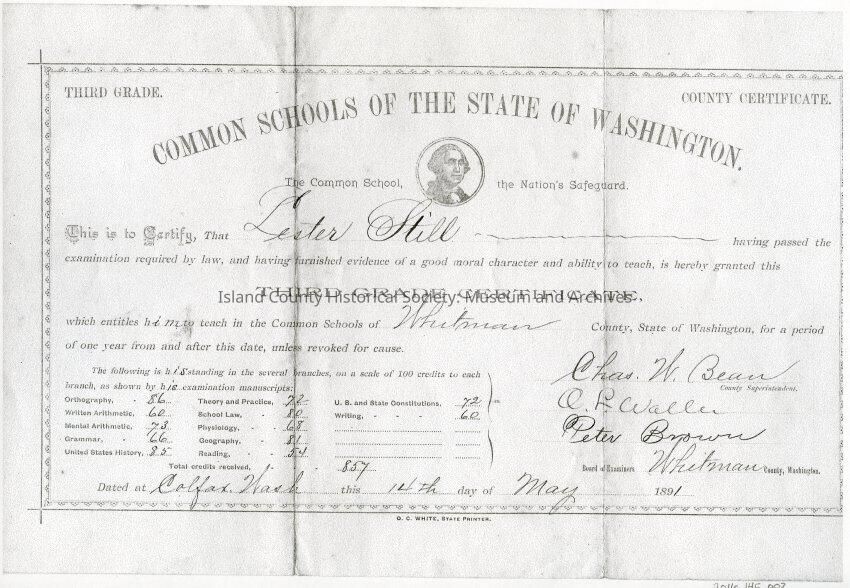 THIRD GRADE. COUNTY CERTIFICATE.
COMMON SCHOOLS OF THE STATE OF WASHINGTON.
The Common School, the Nation's Safeguard.
This is to Certify, That Lester Still having passed the
examination required by law, and having furnished evidence of a good moral character and ability to teach, is hereby granted this
THIRD GRADE CERTIFICATE,
Island County Historical Society: Museum and Archives
which entitles him to teach in the Common Schools of Whitman County, State of Washington, for a period
of one year from and after this date, unless revoked for cause.
The following is his standing in the several branches, on a scale of 100 credits to each
branch, as shown by his examination manuscripts:
Orthography, 86 Theory and Practice, 72 U. S. and State Constitutions, 72
Written Arithmetic, 60 School Law, 80 Writing, 60
Mental Arithmetic, 73 Physiology, 68
Grammar, 66 Geography, 81
United States History, 85 Reading, 54
Total credits received, 857
Chas. W. Bean
County Superintendent.
O. L. Waller
Peter Brown
Board of Examiners Whitman County, Washington.
Dated at Colfax, Wash this 14th day of May 1891
O. C. WHITE, STATE PRINTER.